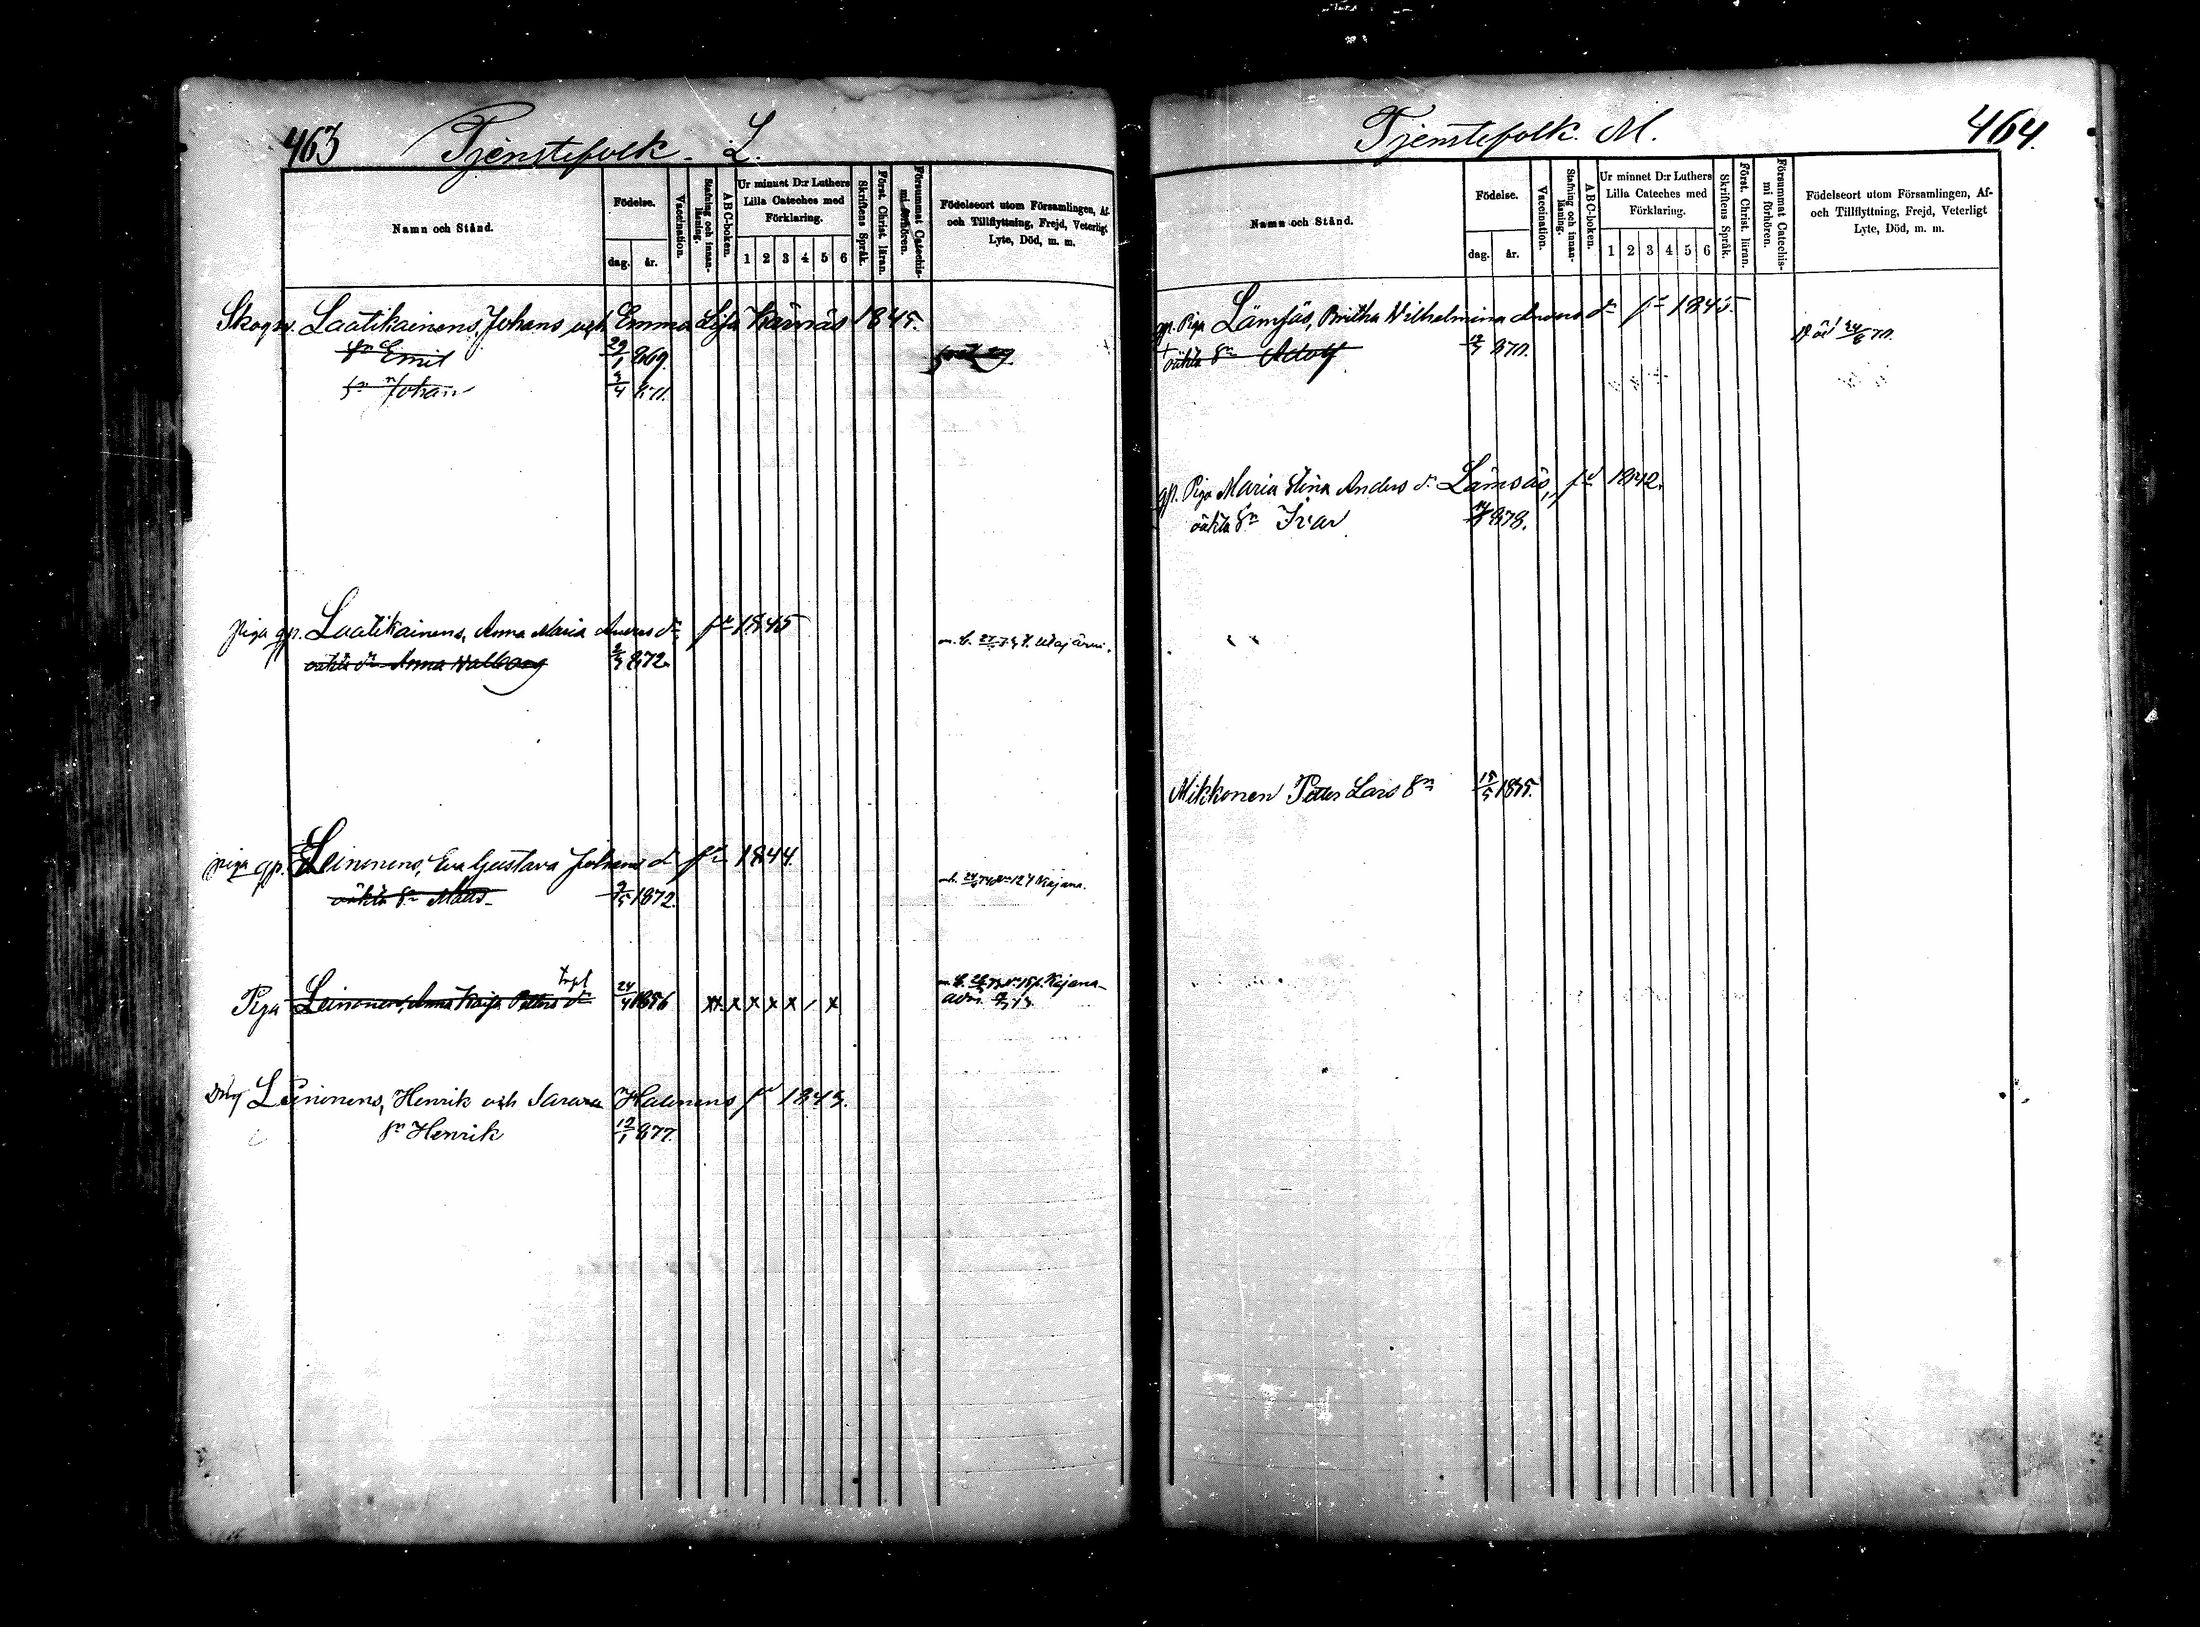 463
Tjenstefolk. L.
Namn och Stånd.
Födelse.
dag.
år.
Vaccination.
Stafning och innan-läsning.
ABC-boken.
Ur minnet D:r Luthers
Lilla Cateches med
Förklaring.
1 2 3 4 5 6
Skriftens Språk.
Först. Christ. läran.
Försummat Catechis-mi förhören.
Födelseort utom Församlingen, Af-
och Tillflyttning, Frejd, Veterligt
Lyte, Död, m. m.
Laatikainens, Johans och Emma Lisa Kärnäs 1845.
sn Emil 29/1 869.
sn Johan
piga gp. Laatikainens, Anna Maria Anders dr fd 1845
oäkta dr Anna Walborg 872.
Utajärvi.
piga gp. Leinonens, Eva Gustava Johans dr fd 1844.
oäkta sn Matts 1872.
Kajana.
Piga Leinonen, Anna Kaisa Petters dr 24/4 1856 x x x x x x / x
Kajana
Leinonens, Henrik och Sara Halonens fd 1843.
sn Henrik 12/1 877.
464.
Tjenstefolk. M.
Namn och Stånd.
Födelse.
dag.
år.
Vaccination.
Stafning och innan-läsning.
ABC-boken.
Ur minnet D:r Luthers
Lilla Cateches med
Förklaring.
1 2 3 4 5 6
Skriftens Språk.
Först. Christ. läran.
Försummat Catechis-mi förhören.
Födelseort utom Församlingen, Af-
och Tillflyttning, Frejd, Veterligt
Lyte, Död, m. m.
gp. Piga Lämsäs, Britha Wilhelmina Anders dr fd 1845.
oäkta sn Adolf 870. död 24/6 70.
gp. Piga Maria Stina Anders dr Lämsäs, fd 1842.
oäkta sn Ivar 878.
Mikkonen Petter Lars sn 15/5 1855.